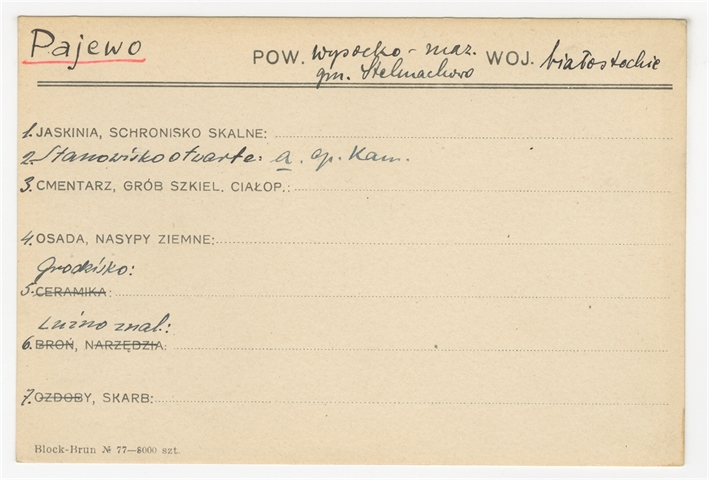 Pajewo
POW. wysocko-maz. WOJ. białostockie
gm. Stelmachowo
1. JASKINIA, SCHRONISKO SKALNE:
2. Stanowisko otwarte: a. ep. Kam.
3. CMENTARZ, GRÓB SZKIEL. CIAŁOP.:
4. OSADA, NASYPY ZIEMNE:
Grodzisko:
5. CERAMIKA:
Luźno znal.:
6. BROŃ, NARZĘDZIA:
7. OZDOBY, SKARB:
Block-Brun № 77—8000 szt.